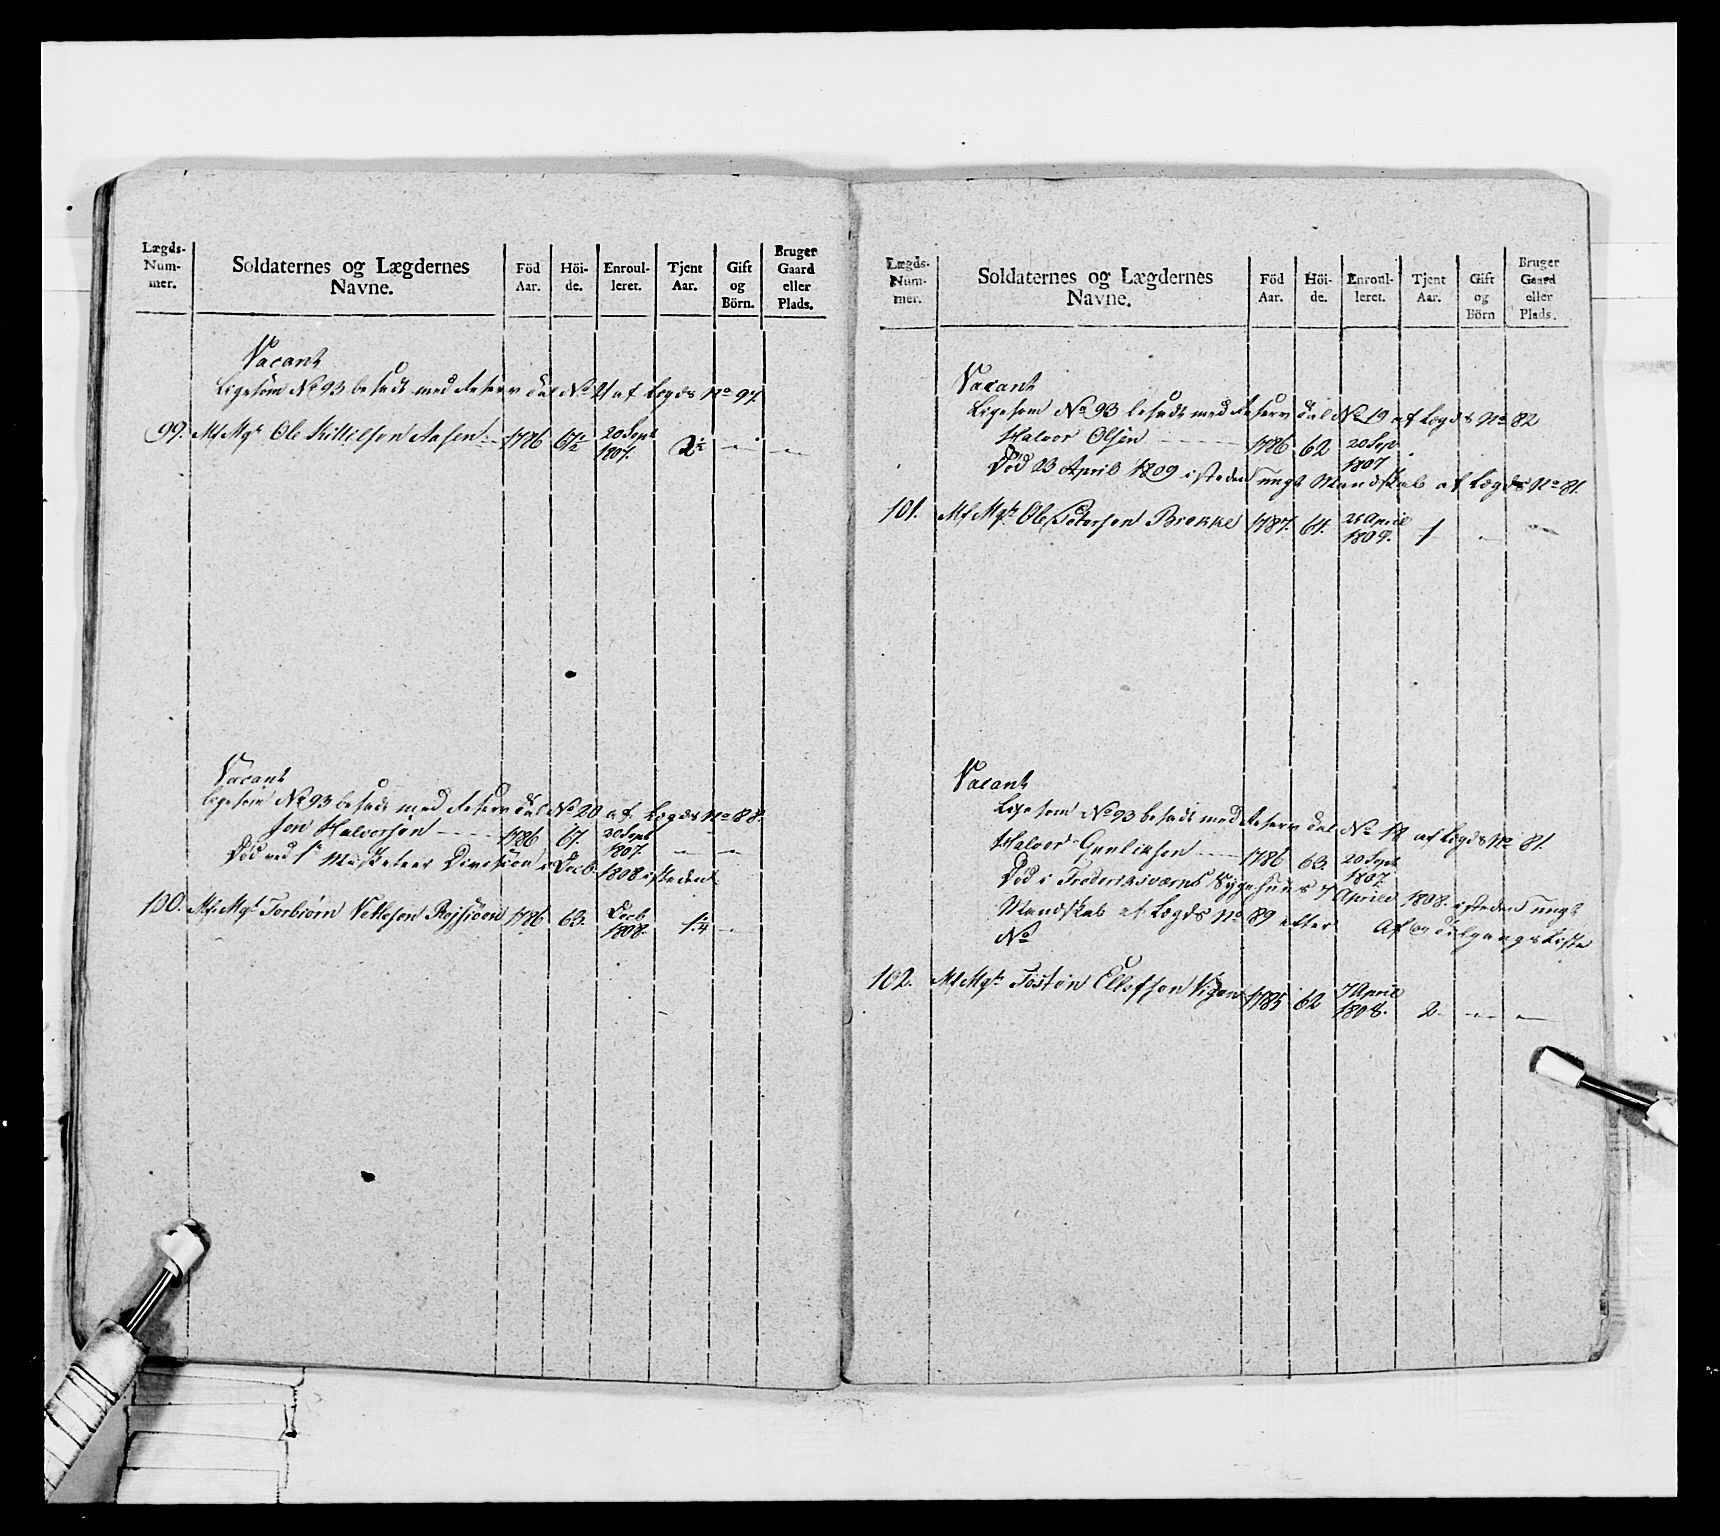 Lægds-
Num-
mer.
Soldaternes og Lægdernes
Navne.
Föd
Aar.
Höi-
de.
Enroul-
leret.
Tjent
Aar.
Gift
og
Börn.
Bruger
Gaard
eller
Plads.
Vacant
Ligesom No 93 besadt med Reserv Dal No 21 af Lægds No 97.
99. Mf. Mgt Ole Kittilson Aasen 1786 67½ 20 Sept 1807. 2½
Vacant
ligesom No 93 besadt med Reserv Dal No 20 af Lægds No 88.
Jon Halvorsön 1786 67. 20 Sept 1807.
Död ved 1te Musketeer Division i Decb. 1808 isteden
100. Mf. Mgt Torbiörn Vetleson 1786 63. Decb 1808. 1¼
Lægds-
Num-
mer.
Soldaternes og Lægdernes
Navne.
Föd
Aar.
Höi-
de.
Enroul-
leret.
Tjent
Aar.
Gift
og
Börn
Bruger
Gaard
eller
Plads.
Vacant
Ligesom No 93 besadt med Reserv Dal No 19 af Lægds No 82
Halvor Olsen 1786 62 20 Sept 1807
Död 23 April 1809 isteden ungt Mandskab af Lægds No 81.
101. Mf. Mgt Ole Peterson Brekke 1787. 64. April 1809. 1
Vacant
Ligesom No 93 besadt med Reserv Dal No 18 af Lægds No 81.
Halvor Gunlikson 1786 63. 20 Sept 1807.
Död i Frederiksværns Sygehuus 7 April 1808. isteden ungt
Mandskab af Lægds No 89 efter Af og Tilgangs Liste
No
102. Mf. Mgt Tostön Ellefson 1785 62 7 April 1808. 2